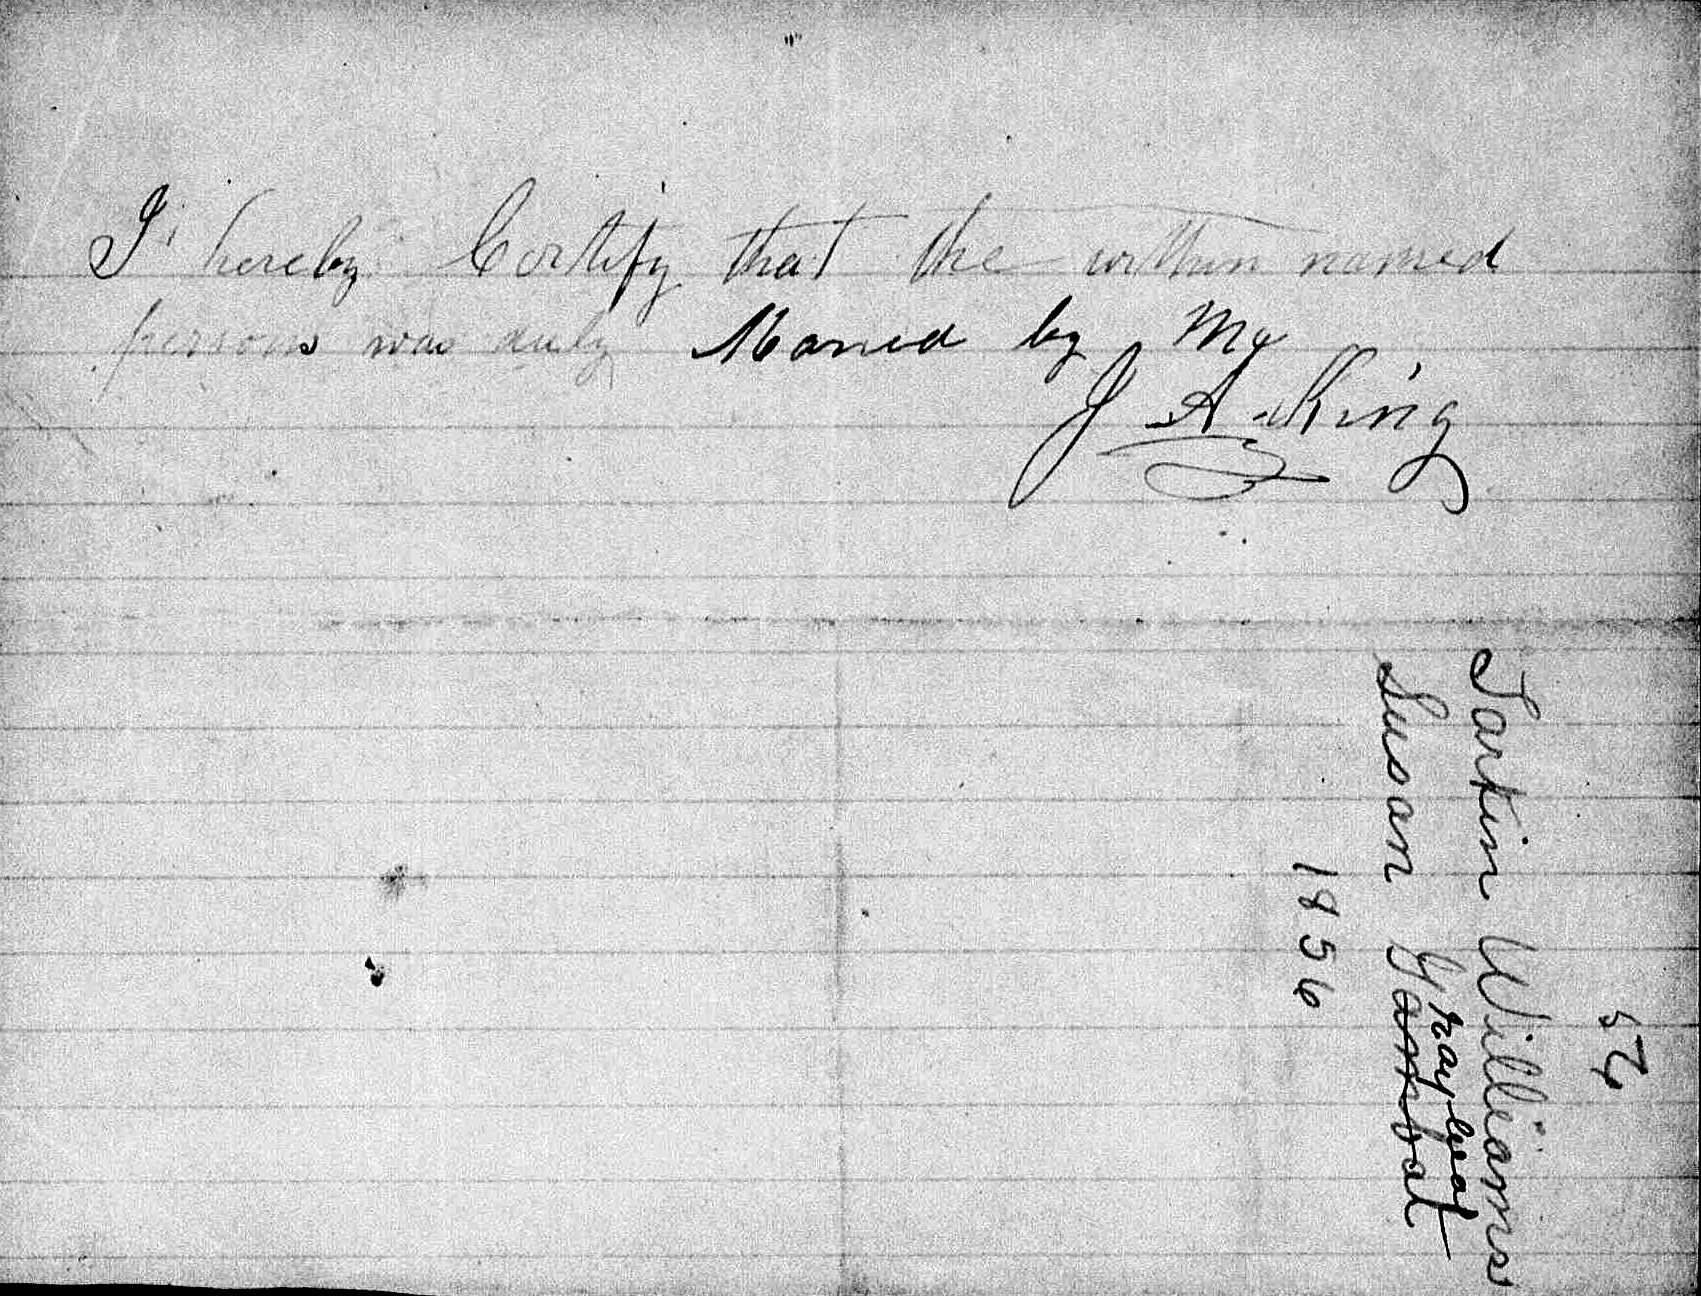 I hereby Certify that the within named
persons was duly Maried by Me
J A King
57
Tarkin Williams
Susan Graybeal
1856